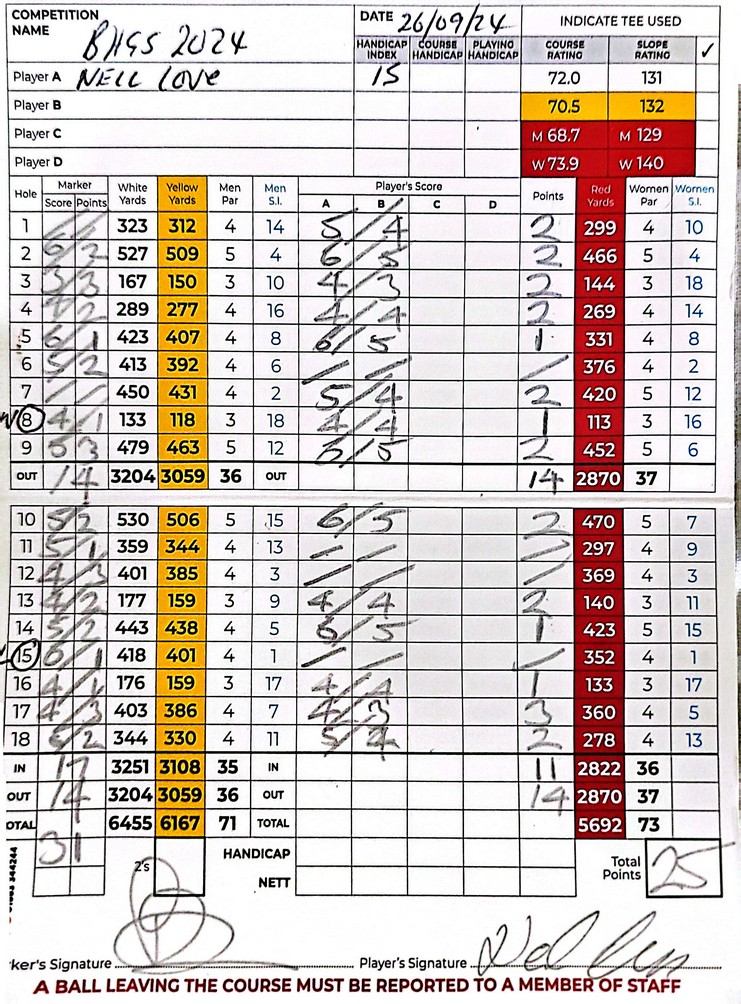 COMPETITION NAME BAGS 2024 DATE 26/09/24 INDICATE TEE USED
HANDICAP INDEX COURSE HANDICAP PLAYING HANDICAP COURSE RATING SLOPE RATING ✓
Player A NEIL LOVE 15 72.0 131
Player B 70.5 132
Player C M 68.7 M 129
Player D W 73.9 W 140
Hole Marker White Yards Yellow Yards Men Par Men S.I. Player's Score Points Red Yards Women Par Women S.I.
Score Points A B C D
1 / / 323 312 4 14 5/4 2 299 4 10
2 6/2 527 509 5 4 6/5 2 466 5 4
3 3/3 167 150 3 10 4/3 2 144 3 18
4 4/2 289 277 4 16 4/4 2 269 4 14
5 6/1 423 407 4 8 6/5 1 331 4 8
6 5/2 413 392 4 6 / / / 376 4 2
7 / / 450 431 4 2 5/4 2 420 5 12
8 4/1 133 118 3 18 4/4 1 113 3 16
9 5 3 479 463 5 12 5/5 2 452 5 6
OUT 14 3204 3059 36 OUT 14 2870 37
10 5/2 530 506 5 15 6/5 2 470 5 7
11 5/1 359 344 4 13 / / / 297 4 9
12 4/3 401 385 4 3 / / / 369 4 3
13 4/2 177 159 3 9 4/4 2 140 3 11
14 5/2 443 438 4 5 6/5 1 423 5 15
15 6/1 418 401 4 1 / / / 352 4 1
16 4/1 176 159 3 17 4/4 1 133 3 17
17 4/3 403 386 4 7 4/3 3 360 4 5
18 5/2 344 330 4 11 5/4 2 278 4 13
IN 17 3251 3108 35 IN 11 2822 36
OUT 14 3204 3059 36 OUT 14 2870 37
OTAL 6455 6167 71 TOTAL 5692 73
31 2's HANDICAP Total Points 25
NETT
344244
ker's Signature Player's Signature
A BALL LEAVING THE COURSE MUST BE REPORTED TO A MEMBER OF STAFF